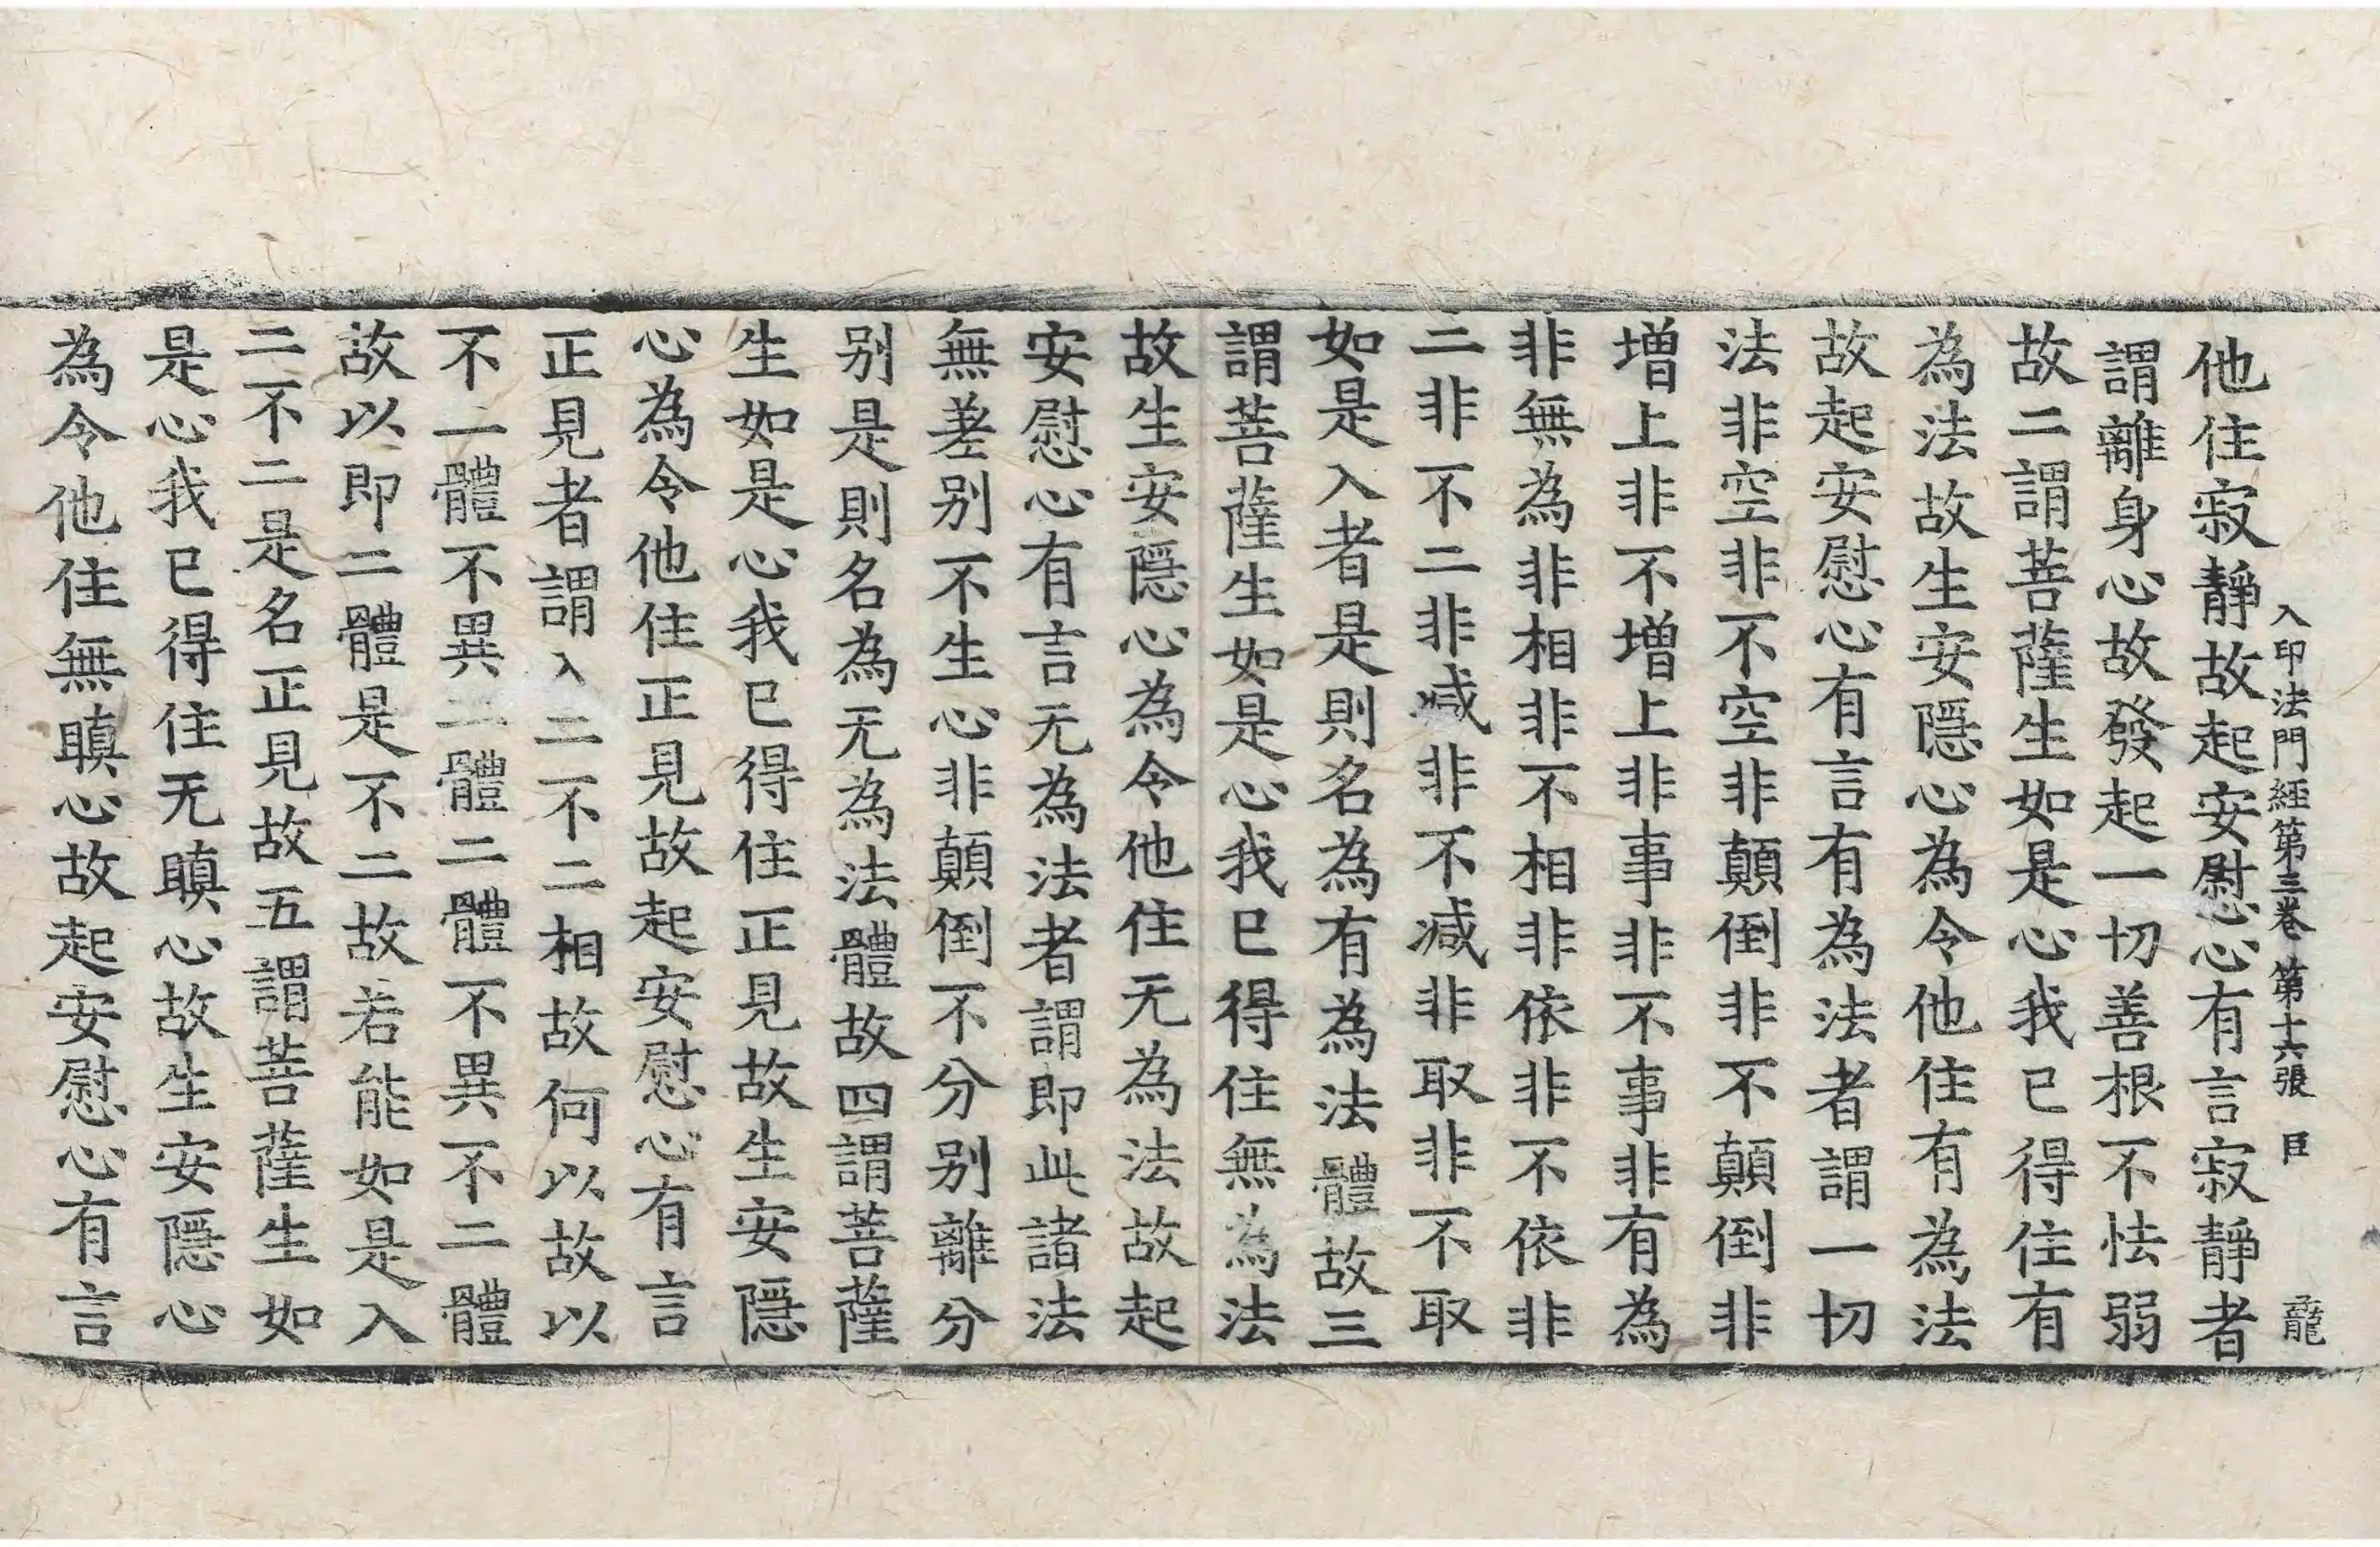 入印法門經第三卷 第十六張 臣 龍
他住寂靜故起安慰心有言寂靜者
謂離身心故發起一切善根不怯弱
故二謂菩薩生如是心我已得住有
為法故生安隱心為令他住有為法
故起安慰心有言有為法者謂一切
法非空非不空非顛倒非不顛倒非
增上非不增上非事非不事非有為
非無為非相非不相非依非不依非
二非不二非减非不减非取非不取
如是入者是則名為有為法體故三
謂菩薩生如是心我已得住無為法
故生安隱心為令他住无為法故起
安慰心有言无為法者謂即此諸法
無差别不生心非顛倒不分别離分
别是則名為无為法體故四謂菩薩
生如是心我已得住正見故生安隱
心為令他住正見故起安慰心有言
正見者謂入二不二相故何以故以
不一體不異二體二體不異不二體
故以即二體是不二故若能如是入
二不二是名正見故五謂菩薩生如
是心我已得住无瞋心故生安隱心
為令他住無瞋心故起安慰心有言